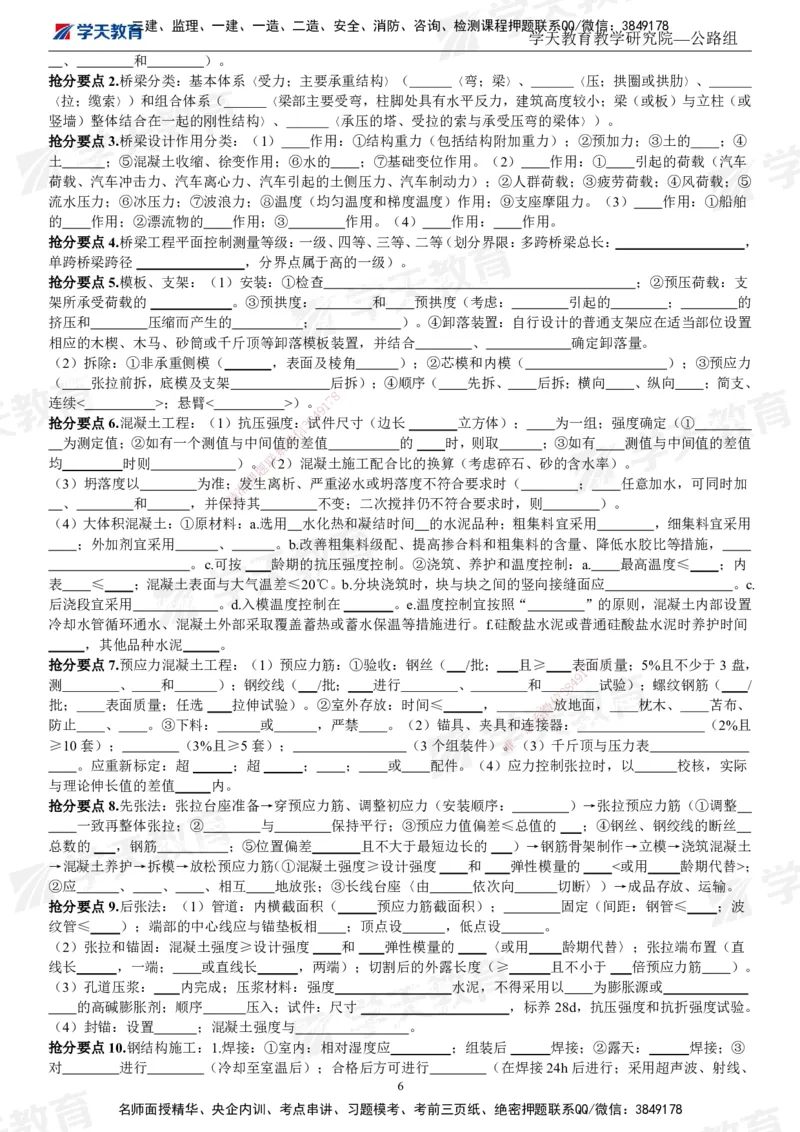 学天教育 二建、监理、一建、一造、二造、安全、消防、咨询、检测课程押题联系QQ/微信：3849178
学天教育教学研究院—公路组
__、________和________）。
抢分要点 2.桥梁分类：基本体系〈受力；主要承重结构〉（______〈弯；梁〉、______〈压；拱圈或拱肋〉、______
〈拉；缆索〉）和组合体系（______〈梁部主要受弯，柱脚处具有水平反力，建筑高度较小；梁（或板）与立柱（或
竖墙）整体结合在一起的刚性结构〉、______〈承压的塔、受拉的索与承受压弯的梁体〉）。
抢分要点 3.桥梁设计作用分类：（1）____作用：①结构重力（包括结构附加重力）；②预加力；③土的____；④
土______；⑤混凝土收缩、徐变作用；⑥水的____；⑦基础变位作用。（2）____作用：①____引起的荷载（汽车
荷载、汽车冲击力、汽车离心力、汽车引起的土侧压力、汽车制动力）；②人群荷载；③疲劳荷载；④风荷载；⑤
流水压力；⑥冰压力；⑦波浪力；⑧温度（均匀温度和梯度温度）作用；⑨支座摩阻力。（3）____作用：①船舶
的____作用；②漂流物的____作用；③________作用。（4）____作用：____作用。
抢分要点 4.桥梁工程平面控制测量等级：一级、四等、三等、二等（划分界限：多跨桥梁总长：__________________，
单跨桥梁跨径 _______________，分界点属于高的一级）。
抢分要点 5.模板、支架：（1）安装：①检查____________________________________________；②预压荷载：支
架所承受荷载的 ___________。③预拱度：________和____预拱度（考虑：________引起的______；______的
挤压和________压缩而产生的__________；____________）。④卸落装置：自行设计的普通支架应在适当部位设置
相应的木楔、木马、砂筒或千斤顶等卸落模板装置，并结合________、____________确定卸落量。
（2）拆除：①非承重侧模（______，表面及棱角______）；②芯模和内模（____________________）；③预应力
（____张拉前拆，底模及支架______________后拆）；④顺序（____先拆、____后拆；横向____、纵向____；简支、
连续<__________>；悬臂<__________>）。
抢分要点 6.混凝土工程：（1）抗压强度：试件尺寸（边长 _______立方体）；____为一组；强度确定（①________
__为测定值；②如有一个测值与中间值的差值__________的 ____时，则取______；③如有____测值与中间值的差值
均________时则____________）。（2）混凝土施工配合比的换算（考虑碎石、砂的含水率）。
（3）坍落度以________为准；发生离析、严重泌水或坍落度不符合要求时（________；____任意加水，可同时加
__、______和______，并保持其________不变；二次搅拌仍不符合要求时，则________）。
（4）大体积混凝土：①原材料：a.选用__水化热和凝结时间__的水泥品种；粗集料宜采用________，细集料宜采用
____；外加剂宜采用______、______。b.改善粗集料级配、提高掺合料和粗集料的含量、降低水胶比等措施，____
____________________。c.可按 ____龄期的抗压强度控制。②浇筑、养护和温度控制：a.____最高温度≤____；内
表____≤____；混凝土表面与大气温差≤20℃。b.分块浇筑时，块与块之间的竖向接缝面应__________________。c.
后浇段宜采用____________。d.入模温度控制在 _______。e.温度控制宜按照“________”的原则，混凝土内部设置
冷却水管循环通水、混凝土外部采取覆盖蓄热或蓄水保温等措施进行。f.硅酸盐水泥或普通硅酸盐水泥时养护时间
_____，其他品种水泥_____。
抢分要点 7.预应力混凝土工程：（1）预应力筋：①验收：钢丝（___/批；___且≥____表面质量；5%且不少于 3 盘，
测________、____和______）；钢绞线（___/批；____进行________、________和________试验）；螺纹钢筋（____/
批；____表面质量；任选 ____拉伸试验）。②室外存放：时间≤______，________放地面，____枕木、____苫布、
防止____、____。③下料：______或______，严禁____。（2）锚具、夹具和连接器：__________________（2%且
≥10 套）；________（3%且≥5 套）；________________（3 个组装件）。（3）千斤顶与压力表______________
____。应重新标定：超 _____；超 _____；____；____或____配件。（4）应力控制张拉时，以______校核，实际
与理论伸长值的差值_____内。
抢分要点 8.先张法：张拉台座准备→穿预应力筋、调整初应力（安装顺序：________）→张拉预应力筋（①调整__
____一致再整体张拉；②________与________保持平行；③预应力值偏差≤总值的 ___；④钢丝、钢绞线的断丝__
总数的 ___，钢筋__________；⑤位置偏差_______且不大于最短边长的 ___）→钢筋骨架制作→立模→浇筑混凝土
→混凝土养护→拆模→放松预应力筋（①混凝土强度≥设计强度 ____和 ____弹性模量的 _____<或用_____龄期代替>；
②应______、____、____、相互____地放张；③长线台座〈由______依次向______切断〉）→成品存放、运输。
抢分要点 9.后张法：（1）管道：内横截面积（______预应力筋截面积）；________固定（间距：钢管≤____；波
纹管≤____）；端部的中心线应与锚垫板相____；顶点设______，低点设______。
（2）张拉和锚固：混凝土强度≥设计强度 ____和 ____弹性模量的 ____〈或用_____龄期代替〉；张拉端布置（直
线长______，一端；____或直线长______，两端）；切割后的外露长度（≥______且不小于 ___倍预应力筋____）。
（3）孔道压浆：____内完成；压浆材料：强度________________水泥，不得采用以____为膨胀源或____________
____的高碱膨胀剂；顺序______压入；试件：尺寸 _____________________，标养 28d，抗压强度和抗折强度试验。
（4）封锚：设置______；混凝土强度与________________。
抢分要点 10.钢结构施工：1.焊接：①室内：相对湿度应_________；组装后 ______焊接；②露天：______焊接；③
对________进行________（冷却至室温后）；合格后方可进行________（在焊接24h后进行；采用超声波、射线、
6
名师面授精华、央企内训、考点串讲、习题模考、考前三页纸、绝密押题联系QQ/微信：3849178